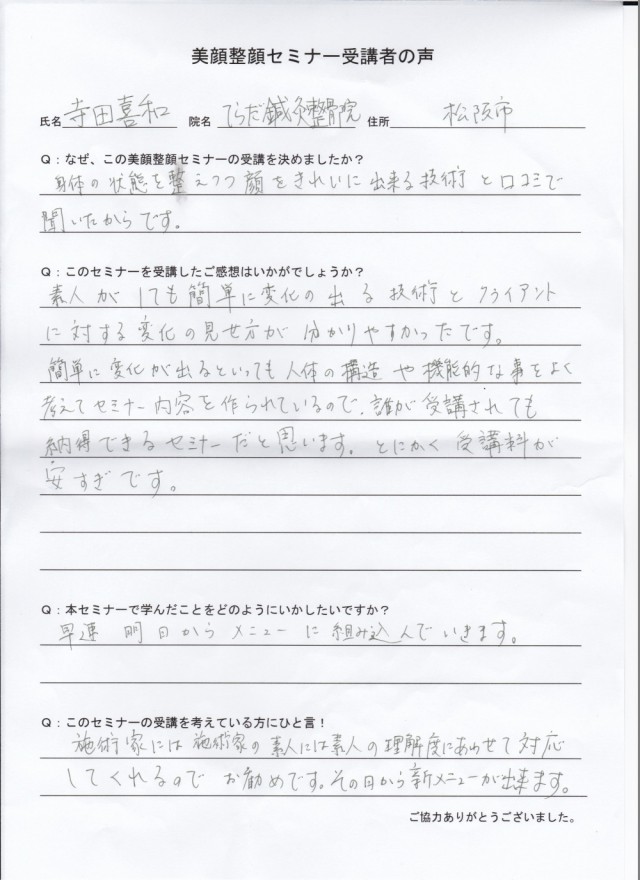 美顔整顔セミナー受講者の声
氏名 寺田喜和 院名 てらだ鍼灸整骨院 住所 松阪市
Q：なぜ、この美顔整顔セミナーの受講を決めましたか？
身体の状態を整えつつ顔をきれいに出来る技術と口コミで
聞いたからです。
Q：このセミナーを受講したご感想はいかがでしょうか？
素人がしても簡単に変化の出る技術とクライアント
に対する変化の見せ方が分かりやすかったです。
簡単に変化が出るといっても人体の構造や機能的な事をよく
考えてセミナー内容を作られているので、誰が受講されても
納得できるセミナーだと思います。とにかく受講料が
安すぎです。
Q：本セミナーで学んだことをどのようにいかしたいですか？
早速 明日からメニューに組み込んでいきます。
Q：このセミナーの受講を考えている方にひと言！
施術家には施術家の素人には素人の理解度にあわせて対応
してくれるのでお勧めです。その日から新メニューが出来ます。
ご協力ありがとうございました。